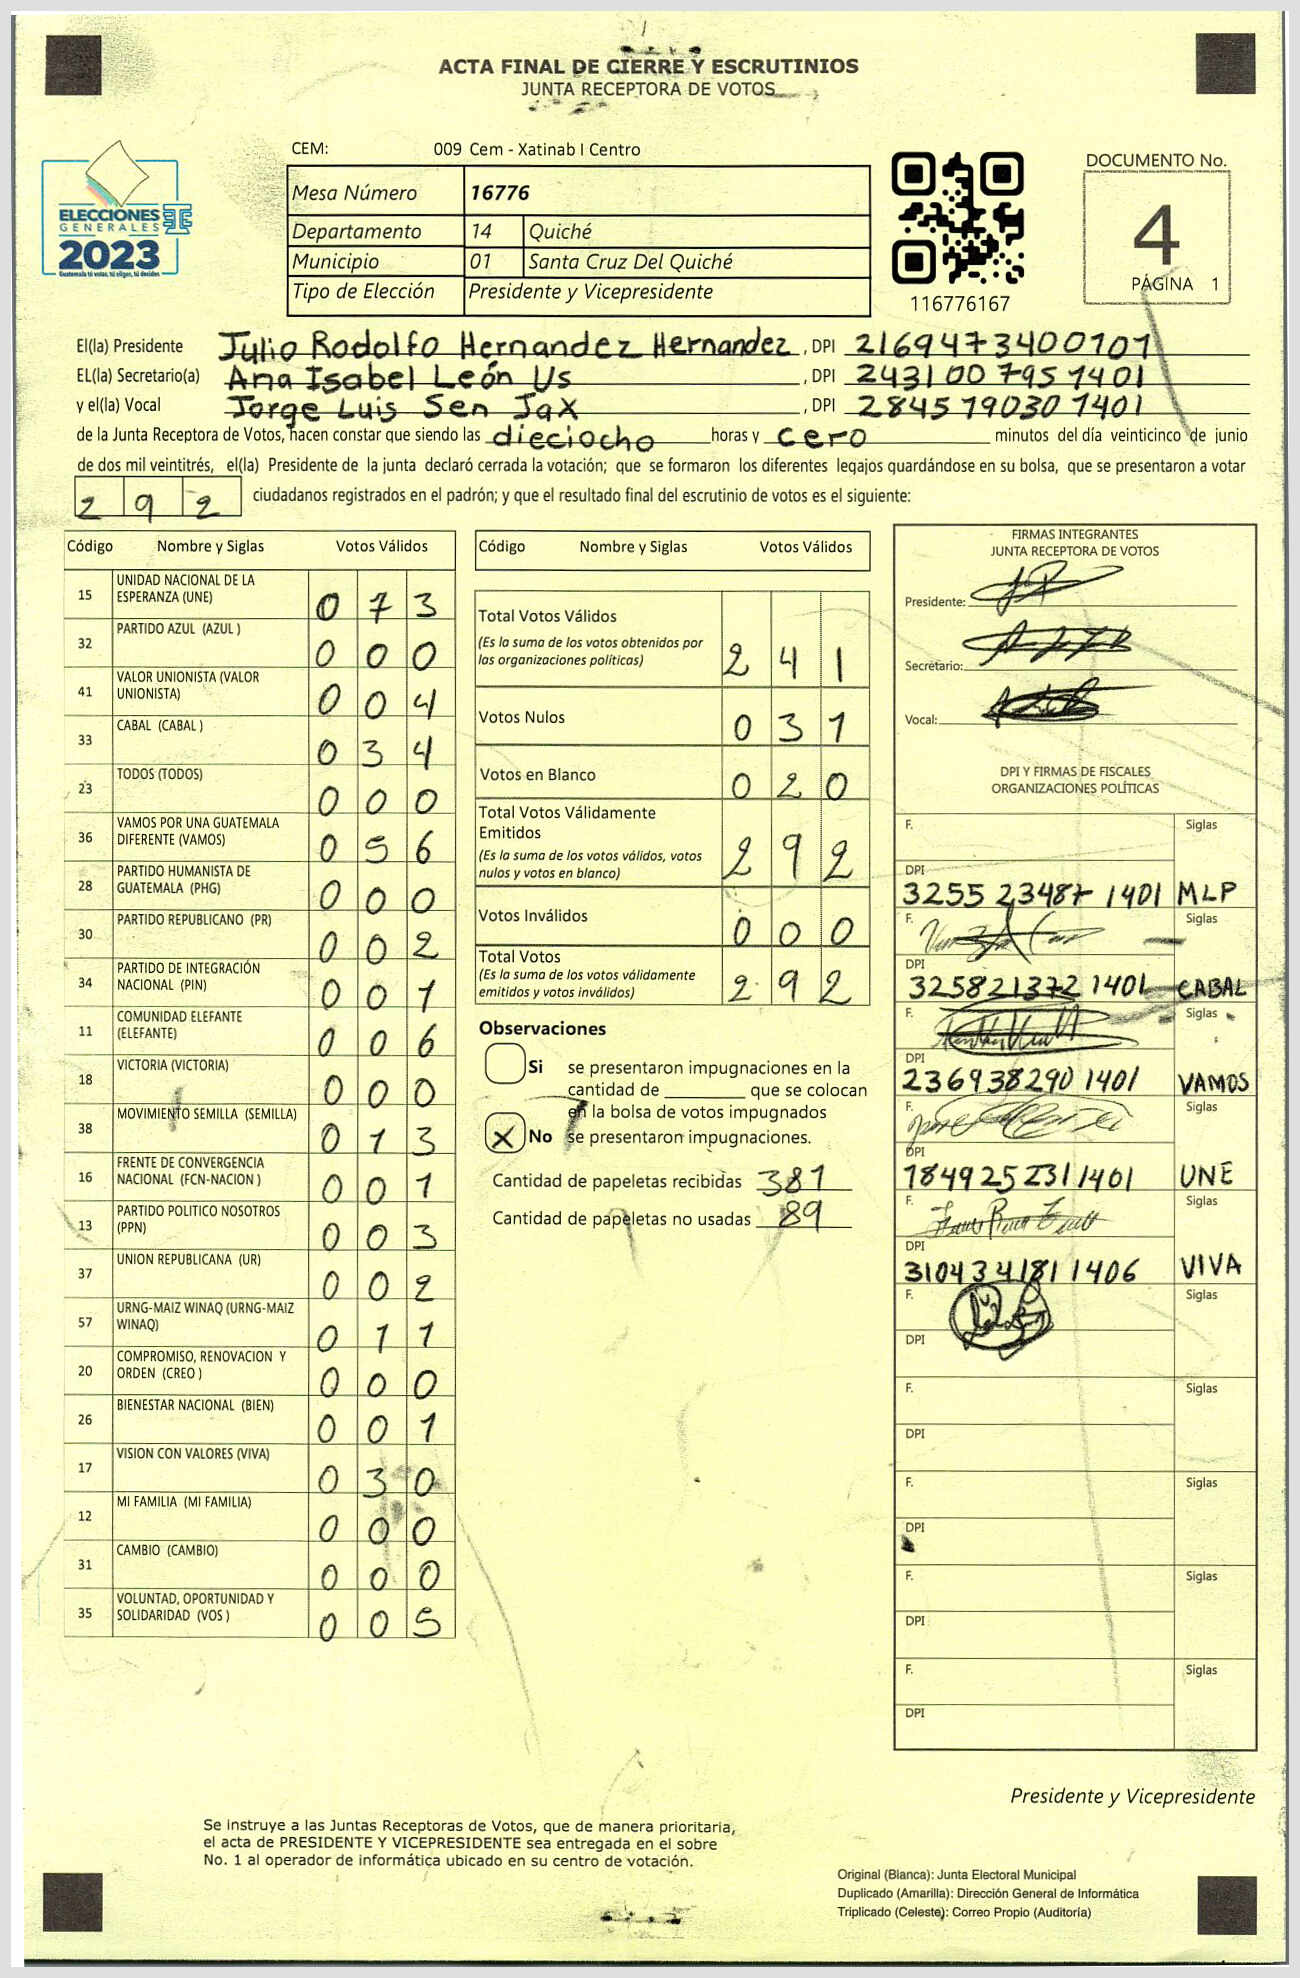 ACTA FINAL DE CIERRE Y ESCRUTINIOS
JUNTA RECEPTORA DE VOTOS
ELECCIONES
GENERALES
2023
Guatemala tú votas, tú eliges, tú decides
CEM: 009 Cem - Xatinab I Centro
Mesa Número 16776
Departamento 14 Quiché
Municipio 01 Santa Cruz Del Quiché
Tipo de Elección Presidente y Vicepresidente
116776167
DOCUMENTO No.
4
PÁGINA 1
El(la) Presidente Julio Rodolfo Hernandez Hernandez, DPI 2169473400101
EL(la) Secretario(a) Ana Isabel León Us, DPI 2431007951401
y el(la) Vocal Jorge Luis Sen Jax, DPI 2845790301401
de la Junta Receptora de Votos, hacen constar que siendo las dieciocho horas y cero minutos del día veinticinco de junio
de dos mil veintitrés, el(la) Presidente de la junta declaró cerrada la votación; que se formaron los diferentes legajos quardándose en su bolsa, que se presentaron a votar
292 ciudadanos registrados en el padrón; y que el resultado final del escrutinio de votos es el siguiente:
Código Nombre y Siglas Votos Válidos
15 UNIDAD NACIONAL DE LA ESPERANZA (UNE) 073
32 PARTIDO AZUL (AZUL ) 000
41 VALOR UNIONISTA (VALOR UNIONISTA) 004
33 CABAL (CABAL ) 034
23 TODOS (TODOS) 000
36 VAMOS POR UNA GUATEMALA DIFERENTE (VAMOS) 056
28 PARTIDO HUMANISTA DE GUATEMALA (PHG) 000
30 PARTIDO REPUBLICANO (PR) 002
34 PARTIDO DE INTEGRACIÓN NACIONAL (PIN) 001
11 COMUNIDAD ELEFANTE (ELEFANTE) 006
18 VICTORIA (VICTORIA) 000
38 MOVIMIENTO SEMILLA (SEMILLA) 013
16 FRENTE DE CONVERGENCIA NACIONAL (FCN-NACION ) 001
13 PARTIDO POLITICO NOSOTROS (PPN) 003
37 UNION REPUBLICANA (UR) 002
57 URNG-MAIZ WINAQ (URNG-MAIZ WINAQ) 011
20 COMPROMISO, RENOVACION Y ORDEN (CREO ) 000
26 BIENESTAR NACIONAL (BIEN) 001
17 VISION CON VALORES (VIVA) 030
12 MI FAMILIA (MI FAMILIA) 000
31 CAMBIO (CAMBIO) 000
35 VOLUNTAD, OPORTUNIDAD Y SOLIDARIDAD (VOS ) 005
Código Nombre y Siglas Votos Válidos
Total Votos Válidos 241
(Es la suma de los votos obtenidos por
las organizaciones políticas)
Votos Nulos 031
Votos en Blanco 020
Total Votos Válidamente
Emitidos 292
(Es la suma de los votos válidos, votos
nulos y votos en blanco)
Votos Inválidos 000
Total Votos 292
(Es la suma de los votos válidamente
emitidos y votos inválidos)
Observaciones
Si se presentaron impugnaciones en la
cantidad de ________ que se colocan
en la bolsa de votos impugnados
X No se presentaron impugnaciones.
Cantidad de papeletas recibidas 381
Cantidad de papeletas no usadas 89
FIRMAS INTEGRANTES
JUNTA RECEPTORA DE VOTOS
Presidente:
Secretario:
Vocal:
DPI Y FIRMAS DE FISCALES
ORGANIZACIONES POLÍTICAS
F. Siglas
DPI
3255 23487 1401 MLP
F. Siglas
DPI
325821372 1401 CABAL
F. Siglas
DPI
236938290 1401 VAMOS
F. Siglas
DPI
184925231 1401 UNE
F. Siglas
DPI
310434181 1406 VIVA
F. Siglas
DPI
F. Siglas
DPI
F. Siglas
DPI
F. Siglas
DPI
F. Siglas
DPI
Presidente y Vicepresidente
Se instruye a las Juntas Receptoras de Votos, que de manera prioritaria,
el acta de PRESIDENTE Y VICEPRESIDENTE sea entregada en el sobre
No. 1 al operador de informática ubicado en su centro de votación.
Original (Blanca): Junta Electoral Municipal
Duplicado (Amarilla): Dirección General de Informática
Triplicado (Celeste): Correo Propio (Auditoría)